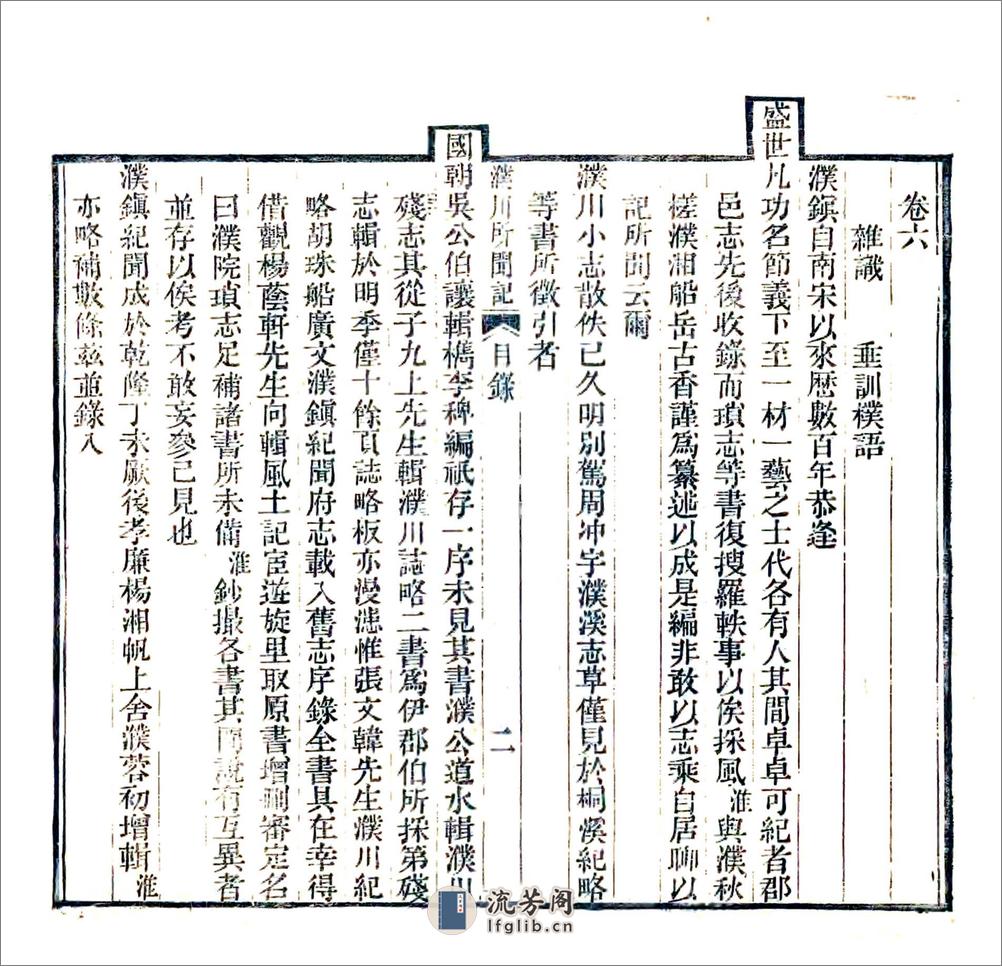 卷六
雜識　垂訓樸語
濮鎮自南宋以來歷數百年恭逢
盛世凡功名節義下至一材一藝之士代各有人其間卓卓可紀者郡
邑志先後收錄而瑣志等書復搜羅軼事以俟採風淮與濮秋
槎濮湘船岳古香謹爲纂述以成是編非敢以志乘自居聊以
記所聞云爾
濮川小志散佚已久明別駕周冲宇濮溪志草僅見於桐溪紀略
等書所徵引者
濮川所聞記　目錄　二
國朝吳公伯讓輯檇李稗編祇存一序未見其書濮公道水輯濮川
殘志其從子九上先生輯濮川誌略二書爲伊郡伯所採第殘
志輯於明季僅十餘頁誌略板亦漫漶惟張文韓先生濮川紀
略胡珠船廣文濮鎮紀聞府志載入舊志序錄全書具在幸得
借觀楊蔭軒先生向輯風土記宦遊旋里取原書增刪審定名
曰濮院瑣志足補諸書所未備淮鈔撮各書其間說有互異者
並存以俟考不敢妄參己見也
濮鎮紀聞成於乾隆丁未厥後孝廉楊湘帆上舍濮蓉初增輯淮
亦略補數條茲並錄入
流芳阁
lfglib.cn